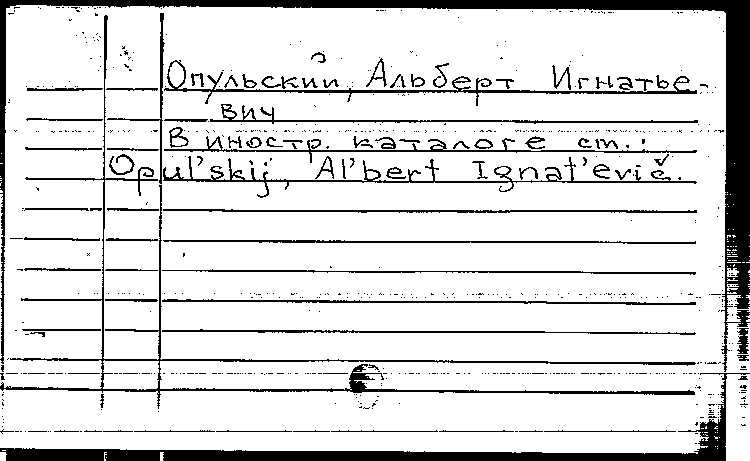 Опульский, Альберт Игнатье-
вич
В иностр. каталоге см.:
Opul'skij, Al'bert Ignat'evič.